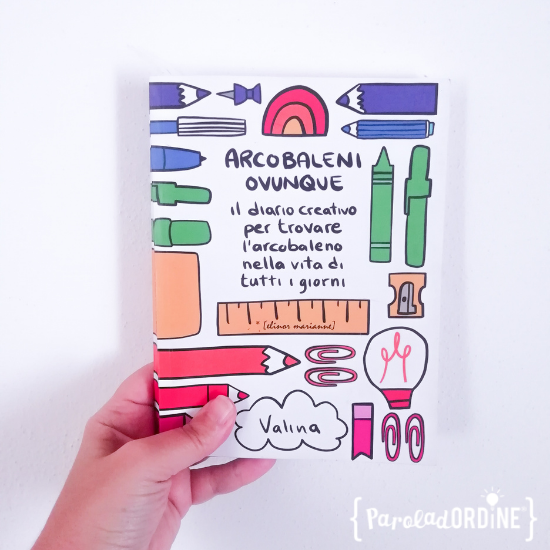 ARCOBALENI
OVUNQUE
il diario creativo
per trovare
l'arcobaleno
nella vita di
tutti i giorni
* [elinor marianne]
Valina
{ParoladORDiNE®}